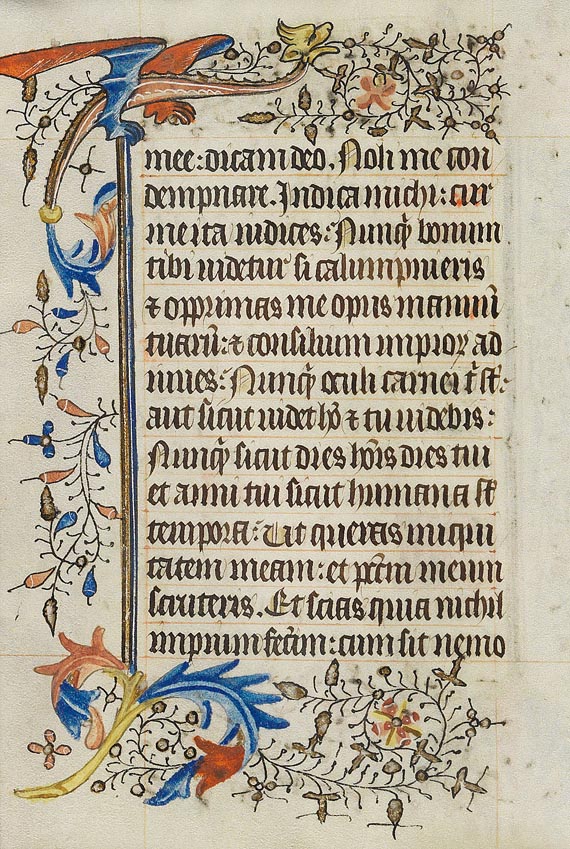 mee: dicam deo. Noli me con
dempnare. Indica michi: cur
me ita iudices: Nunq̃ bonum
tibi uidetur si calumpnieris
⁊ opprimas me opus manuũ
tuarũ: ⁊ consilium impioꝝ ad
iuues: Nunq̃ oculi carnei t̃ st̃:
aut sicut uidet hõ ⁊ tu uidebis:
Nunq̃ sicut dies hoĩs dies tui
et anni tui sicut humana st̃
tempora: Ut queras iniqui
tatem meam: et pctm̃ meum
scruteris. Et scias quia nichil
impium fecim̃: cum sit nemo